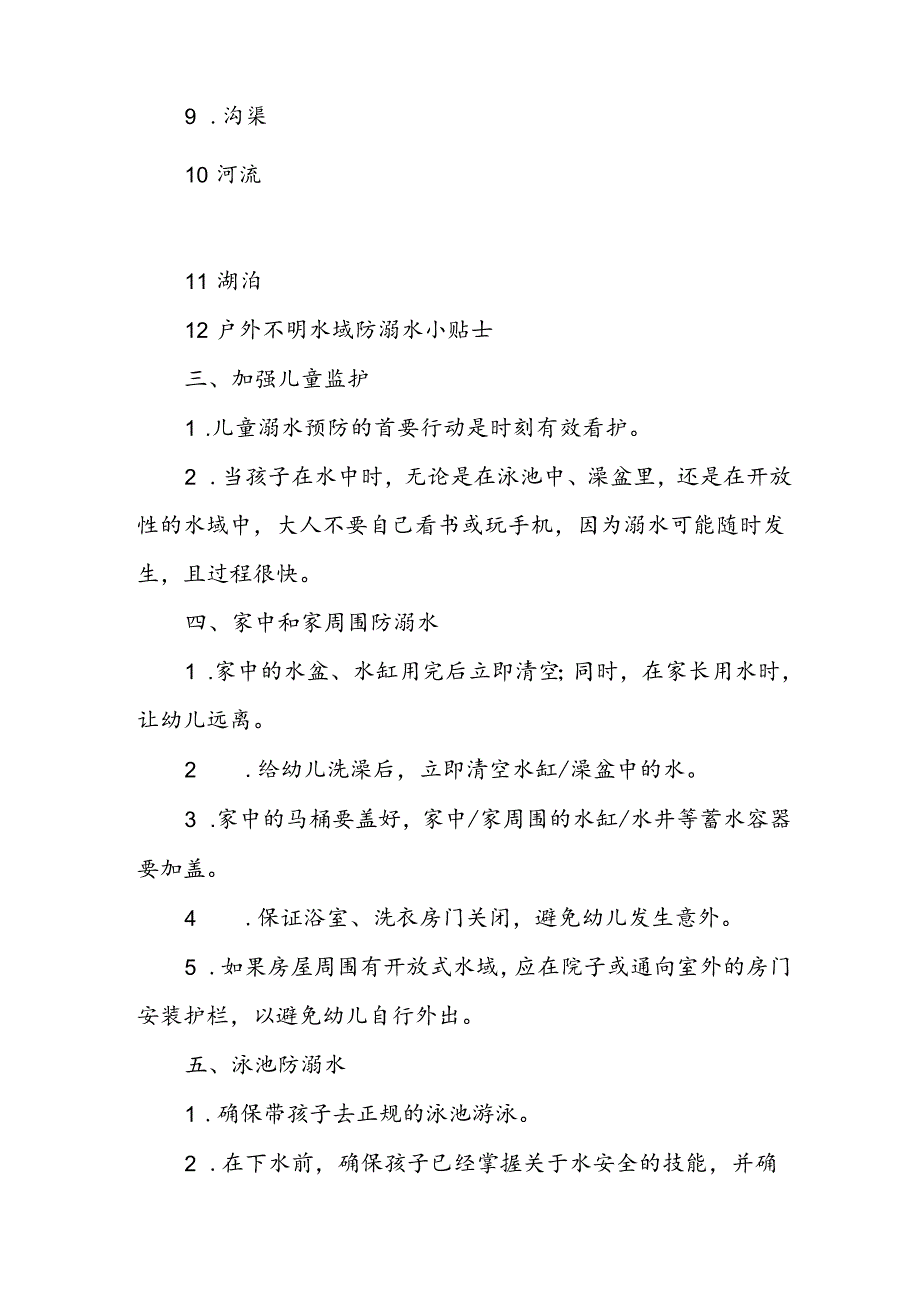 9 .沟渠
10 河流
11 湖泊
12 户外不明水域防溺水小贴士
三、加强儿童监护
1 .儿童溺水预防的首要行动是时刻有效看护。
2 .当孩子在水中时，无论是在泳池中、澡盆里，还是在开放
性的水域中，大人不要自己看书或玩手机，因为溺水可能随时发
生，且过程很快。
四、家中和家周围防溺水
1 .家中的水盆、水缸用完后立即清空；同时，在家长用水时，
让幼儿远离。
2 .给幼儿洗澡后，立即清空水缸/澡盆中的水。
3 .家中的马桶要盖好，家中/家周围的水缸/水井等蓄水容器
要加盖。
4 .保证浴室、洗衣房门关闭，避免幼儿发生意外。
5 .如果房屋周围有开放式水域，应在院子或通向室外的房门
安装护栏，以避免幼儿自行外出。
五、泳池防溺水
1 .确保带孩子去正规的泳池游泳。
2 .在下水前，确保孩子已经掌握关于水安全的技能，并确